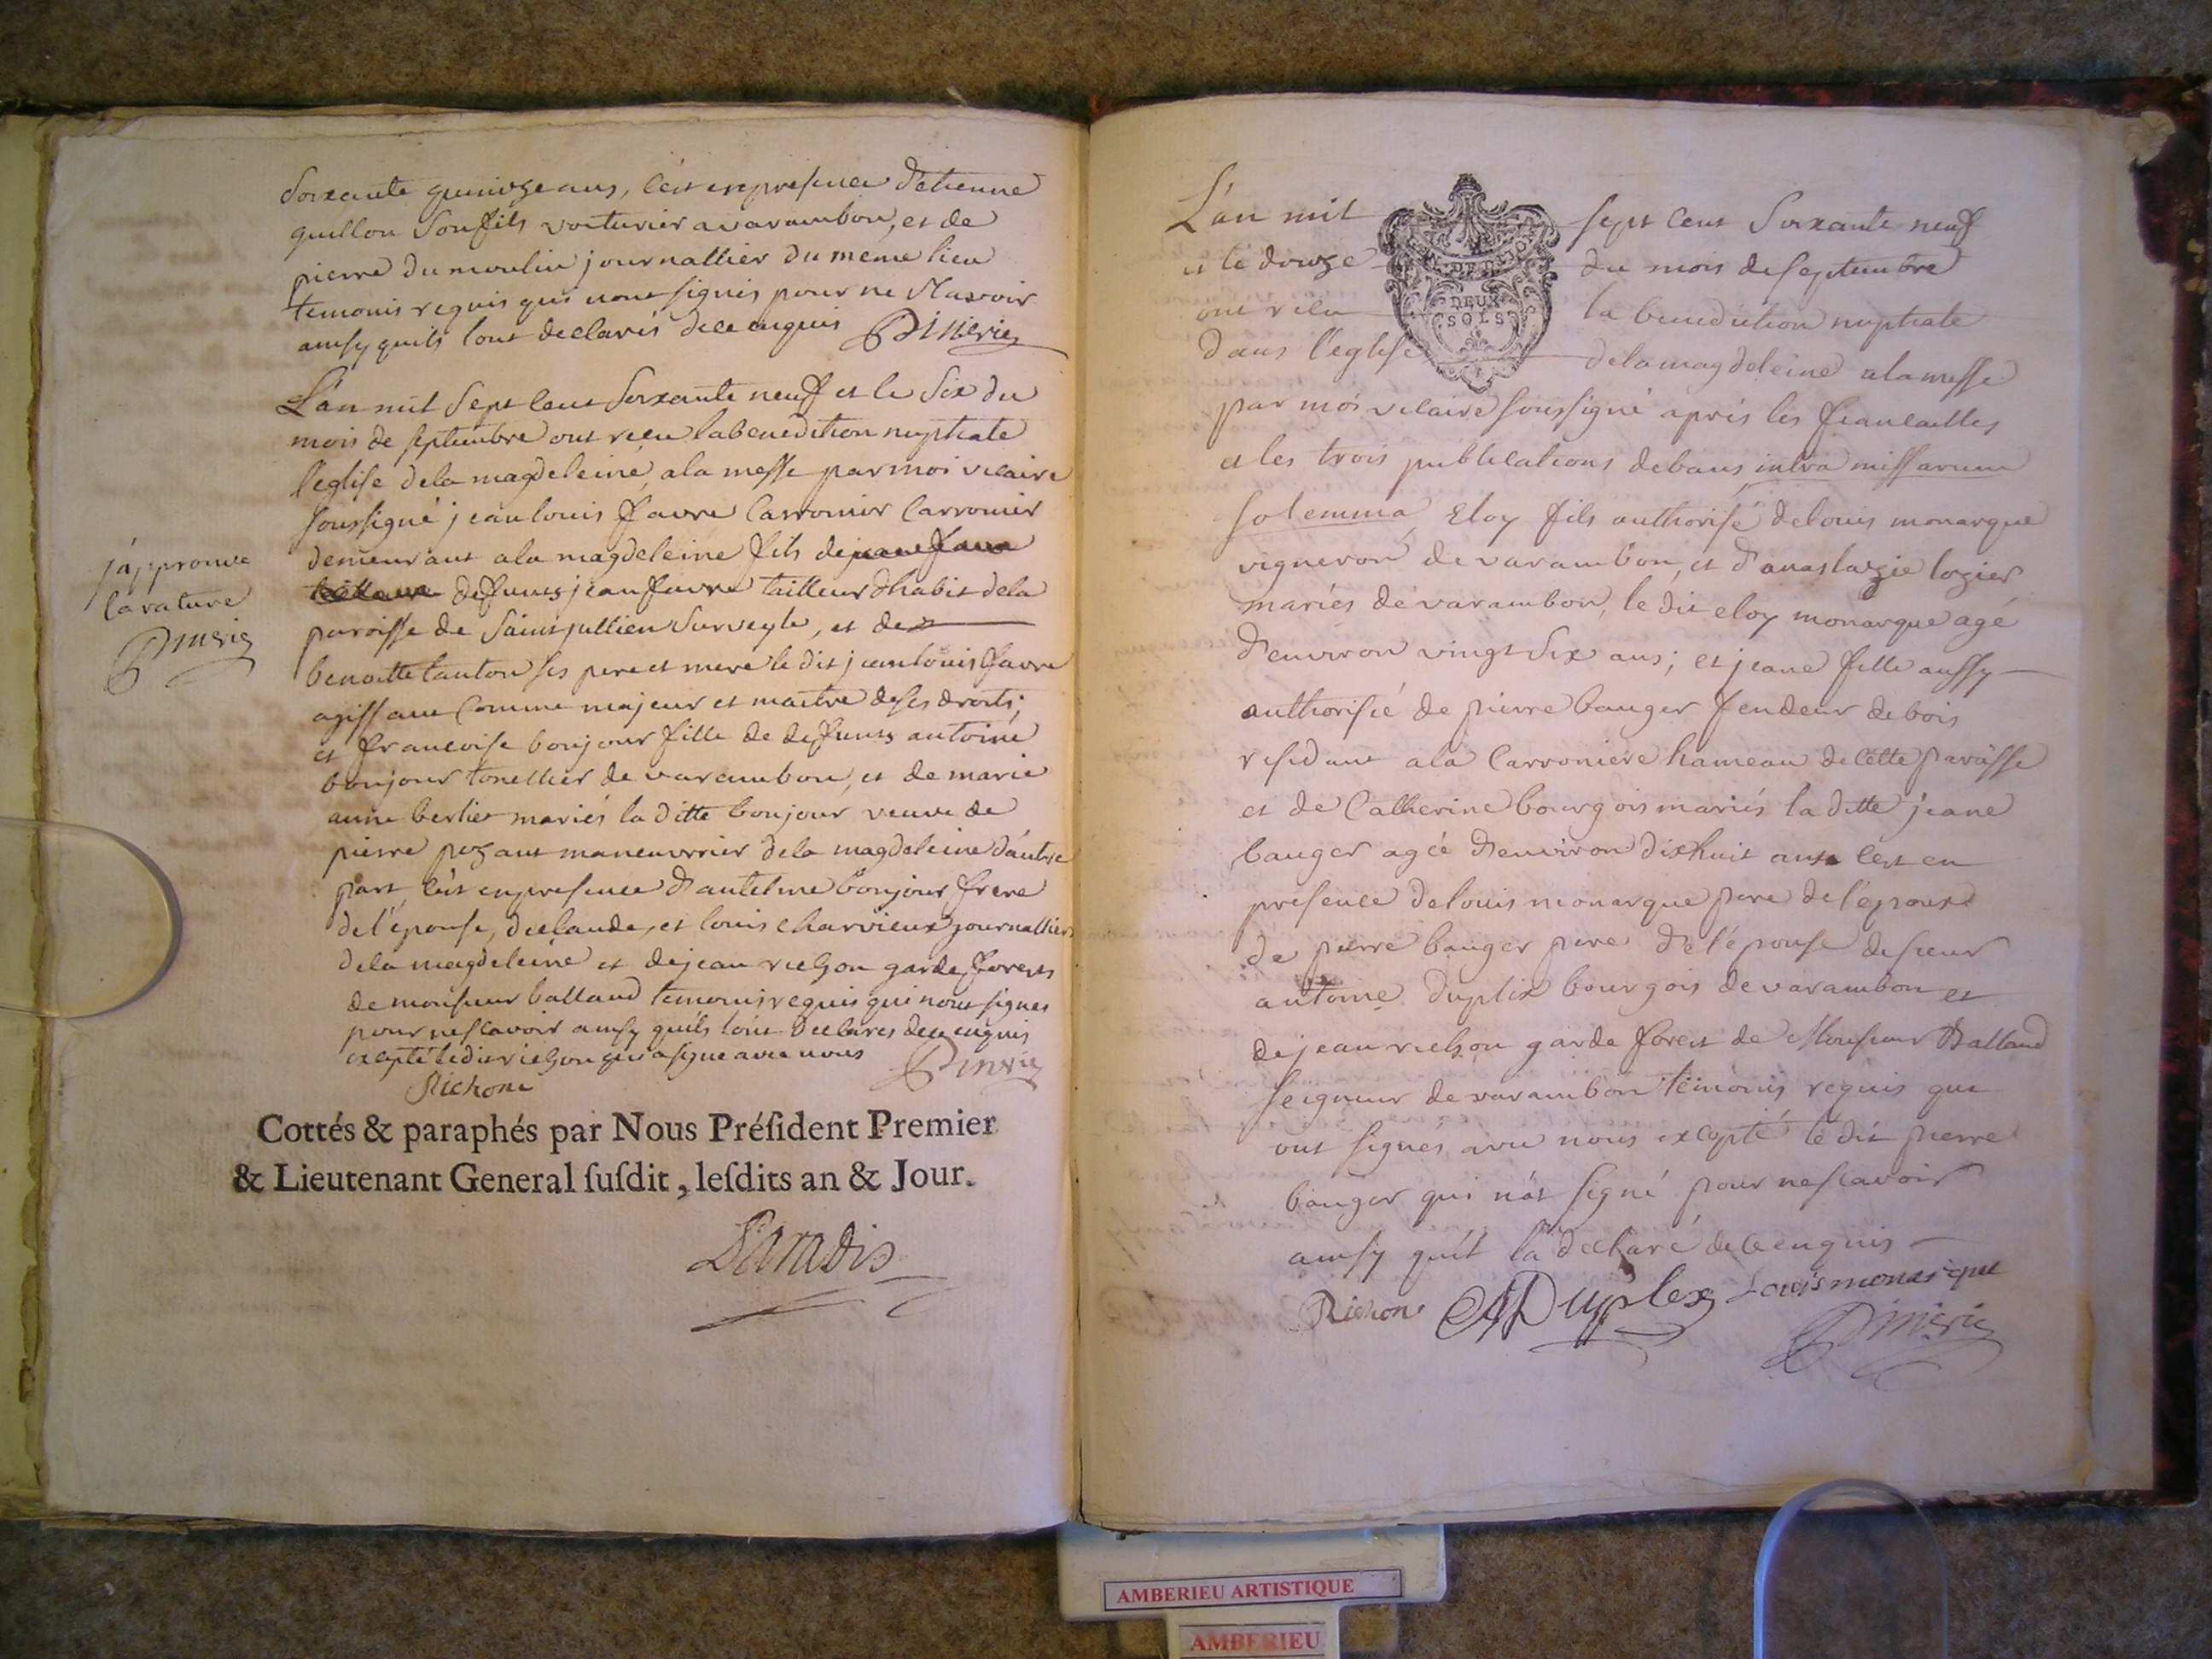 Soixante quinze ans, c'est en presence d'etienne
guillon Son fils voiturier a varambon, et de
pierre dumoulin journallier du meme lieu
temoins requis qui n'ont signés pour ne Scavoir
ainsy quils l'ont declarés de ce enquis
L'an mil Sept cent Soixante neuf et le Six du
mois de septembre ont reçu la benediction nuptiale
l'eglise de la magdeleine, a la messe par moi vicaire
soussigné jean louis favre Carronier Carronier
demeurant a la magdeleine fils de
defunts jean favre tailleur d'habit de la
paroisse de Saint jullien Sur veyle, et de
benoitte tanton ses pere et mere le dit jean louis favre
agissant Comme majeur et maitre de ses droits;
et francoise bonjour fille de defunts antoine
bonjour tonellier de varambon, et de marie
anne berliet mariés la ditte bonjour veuve de
pierre maneuvrier de la magdeleine d'autre
part, c'est en presence d'antelme bonjour frere
de l'epouse, de claude, et louis charvieux journalliers
de la magdeleine et de jean garde forests
de monsieur balland temoins requis qui n'ont signés
pour ne scavoir ainsy quils l'ont declarés de ce enquis
excepté le dit qui a signé avec nous
Richon
j'approuve
la rature
Cottés & paraphés par Nous Préſident Premier
& Lieutenant General ſuſdit, leſdits an & Jour.
L'an mil sept cent Soixante neuf
et le douze du mois de septembre
ont reçu la benediction nuptiale
DEUX
SOLS
dans l'eglise de la magdeleine a la messe
par moi vicaire soussigné après les fiancailles
et les trois publications de bans intra missarum
solemnia, Eloy fils authorisé de louis monarque
vigneron de varambon, et d'anastazie lozier
mariés de varambon, le dit eloy monarque agé
d'environ vingt Six ans; et jeane fille aussy
authorisée de pierre bauger fendeur de bois
residant a la Carroniere hameau de cette paroisse
et de Catherine bourgois mariés la ditte jeane
bauger agée d'environ dixhuit ans c'est en
presence de louis monarque pere de l'epoux
de pierre bauger pere de l'épouse de sieur
antoine duplex bourgois de varambon et
de jean garde forest de Monsieur Balland
seigneur de varambon temoins requis que
ont signés avec nous excepté le dit pierre
bauger qui n'at signé pour ne scavoir
ainsy quil l'a declaré de ce enquis
Richon Duplex Louis monarque
AMBERIEU ARTISTIQUE
AMBERIEU